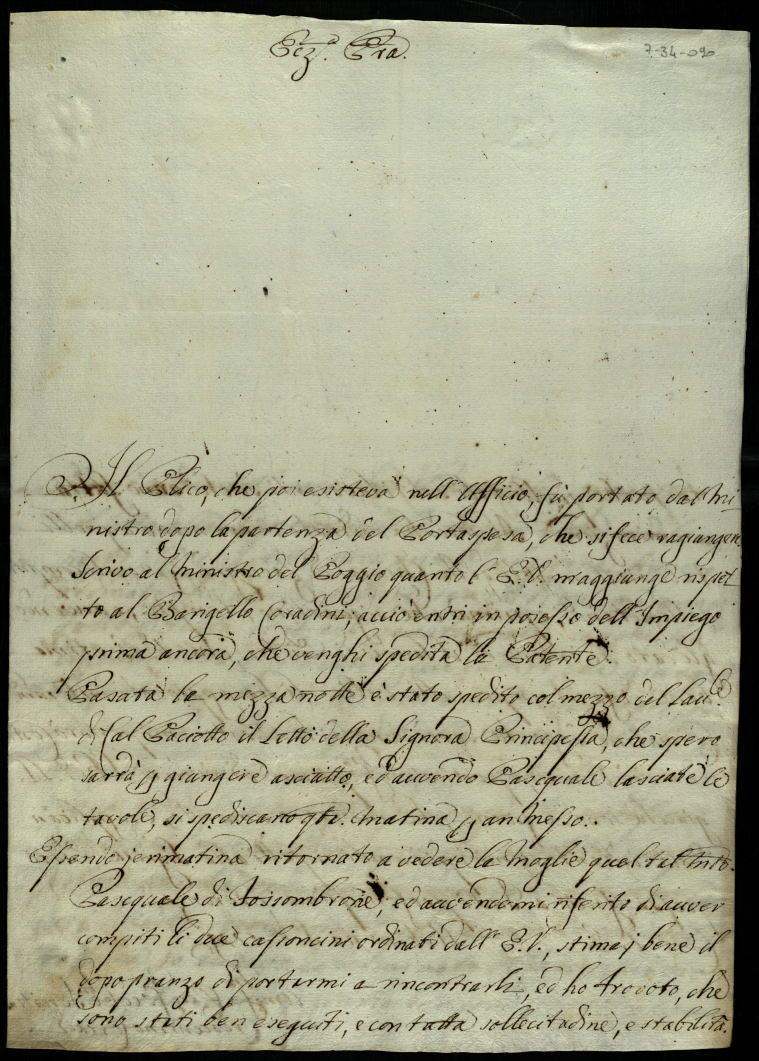 Ecz.ª Pra.
7-34-090
Il Plico, che poi esisteva nell'Officio, fù portato dal Mi
nistro dopo la partenza del Portaspesa, che si fece ragiungere.
Scrivo al Ministro del Poggio quanto l'E.V. m'aggiunge rispet
to al Barigello Coradini, acciò entri in posesso dell'Impiego
prima ancora, che venghi spedita la Patente.
Pasata la mezza notte è stato spedito col mezzo del Lau.e
di Cal Paciotto il Letto della Signora Principessa, che spero
sarrà p giangere asciutto, ed avvendo Pasquale lasciate le
tavole, si spediscano qta. Matina p an Messo.
Essendo jerimatina ritornato a vedere la Moglie quel tal Mro.
Pasquale di Fossombrone, ed avvendomi riferito di avver
compiti li due cassoncini ordinati dall'E.V., stimaj bene il
dopo pranzo di portarmi a rincontrarli, ed ho trovoto, che
sono stati ben eseguiti, e con tutta sollecitudine, e stabilità.